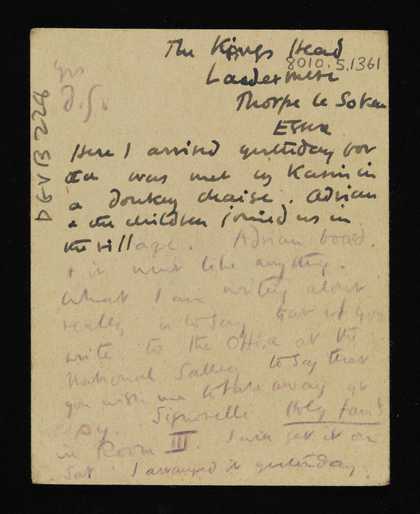 The Kings Head
8010.5.1361
Landermere
Thorpe le Soken
Essex
yrs
D.G.
DGVB 228
Here I arrived yesterday
was met by Karin in
a donkey chaise. Adrian
& the children joined us in
the village. Adrian
& it went like anything.
What I am writing about
really is to say that if you
write to the Office at the
National Gallery to say that
you wish me to take away yr
py. Signorelli Holy Family
in Room III. I will get it on
Sat. I arranged it yesterday.